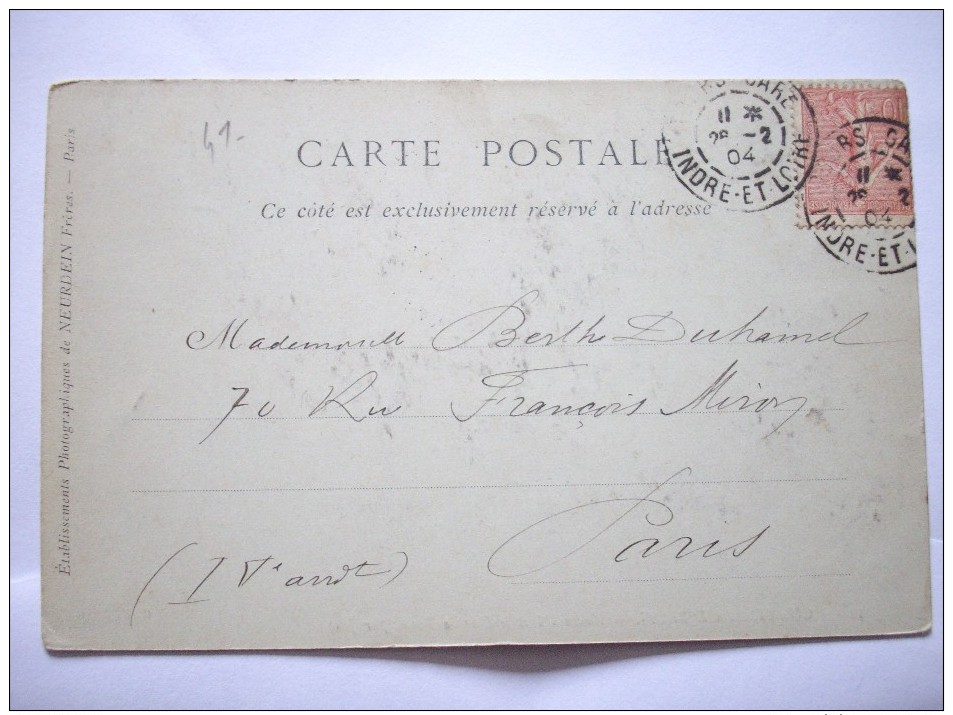 41-
CARTE POSTALE
Ce côté est exclusivement réservé à l'adresse
RS-GARE
11 *
28 -2
04
INDRE-ET-LOIRE
10
RS-GA
11 *
2
04
INDRE-ET-L
Mademoiselle Berthe Duhamel
70 Rue François Miron
Paris
(IVe arrdt)
Établissements Photographiques de NEURDEIN Frères. — Paris